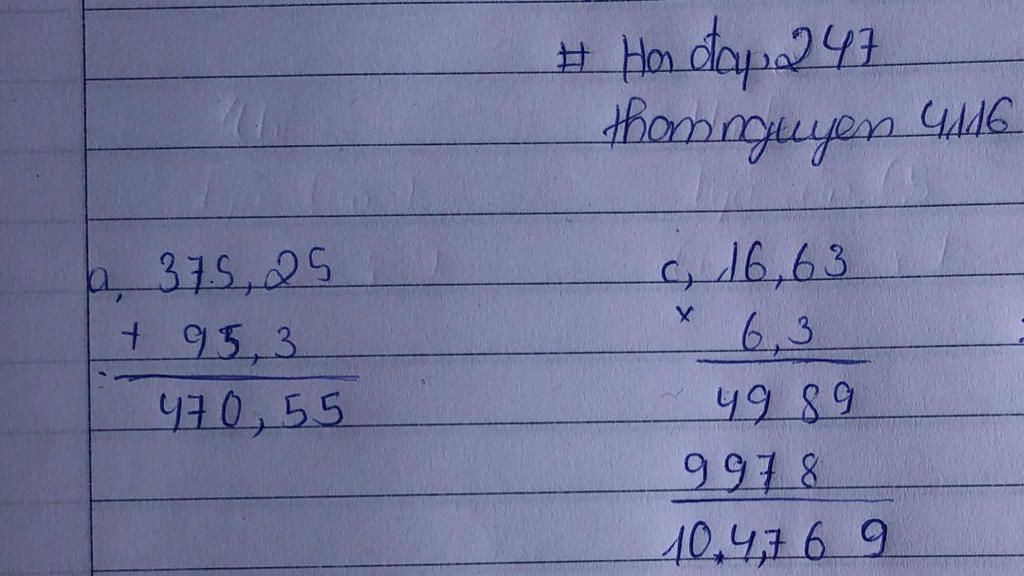 # Hoi đap 247
thomnguyen 4116
a, 375,25
+ 95,3
470,55
c, 16,63
x
6,3
49 89
9978
10.4,76 9